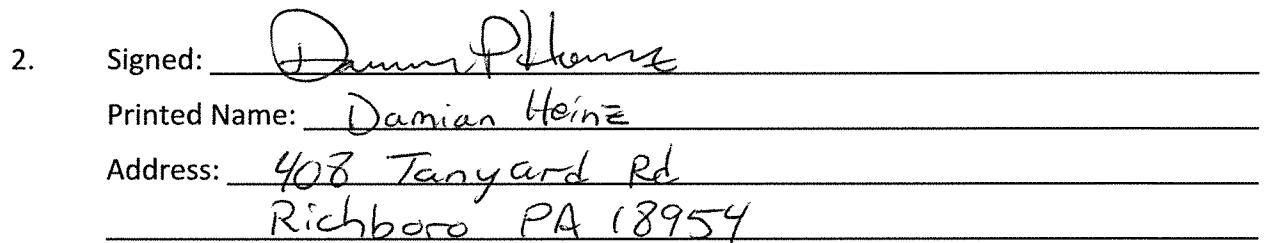 2. Signed:
Printed Name: Damian Heinz
Address: 408 Tanyard Rd
Richboro PA 18954